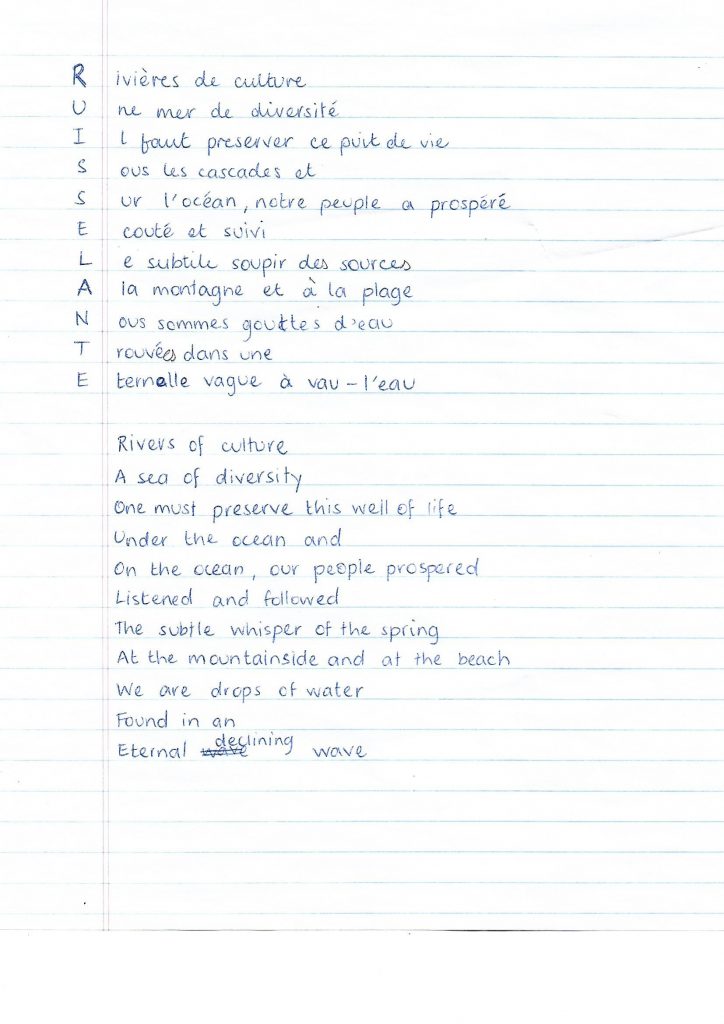 R ivières de culture
U ne mer de diversité
I l faut preserver ce puit de vie
S ous les cascades et
S ur l'océan, notre peuple a prospéré
E couté et suivi
L e subtile soupir des sources
A la montagne et à la plage
N ous sommes gouttes d'eau
T rouvées dans une
E ternelle vague à vau-l'eau
Rivers of culture
A sea of diversity
One must preserve this well of life
Under the ocean and
On the ocean, our people prospered
Listened and followed
The subtle whisper of the spring
At the mountainside and at the beach
We are drops of water
Found in an
Eternal declining wave